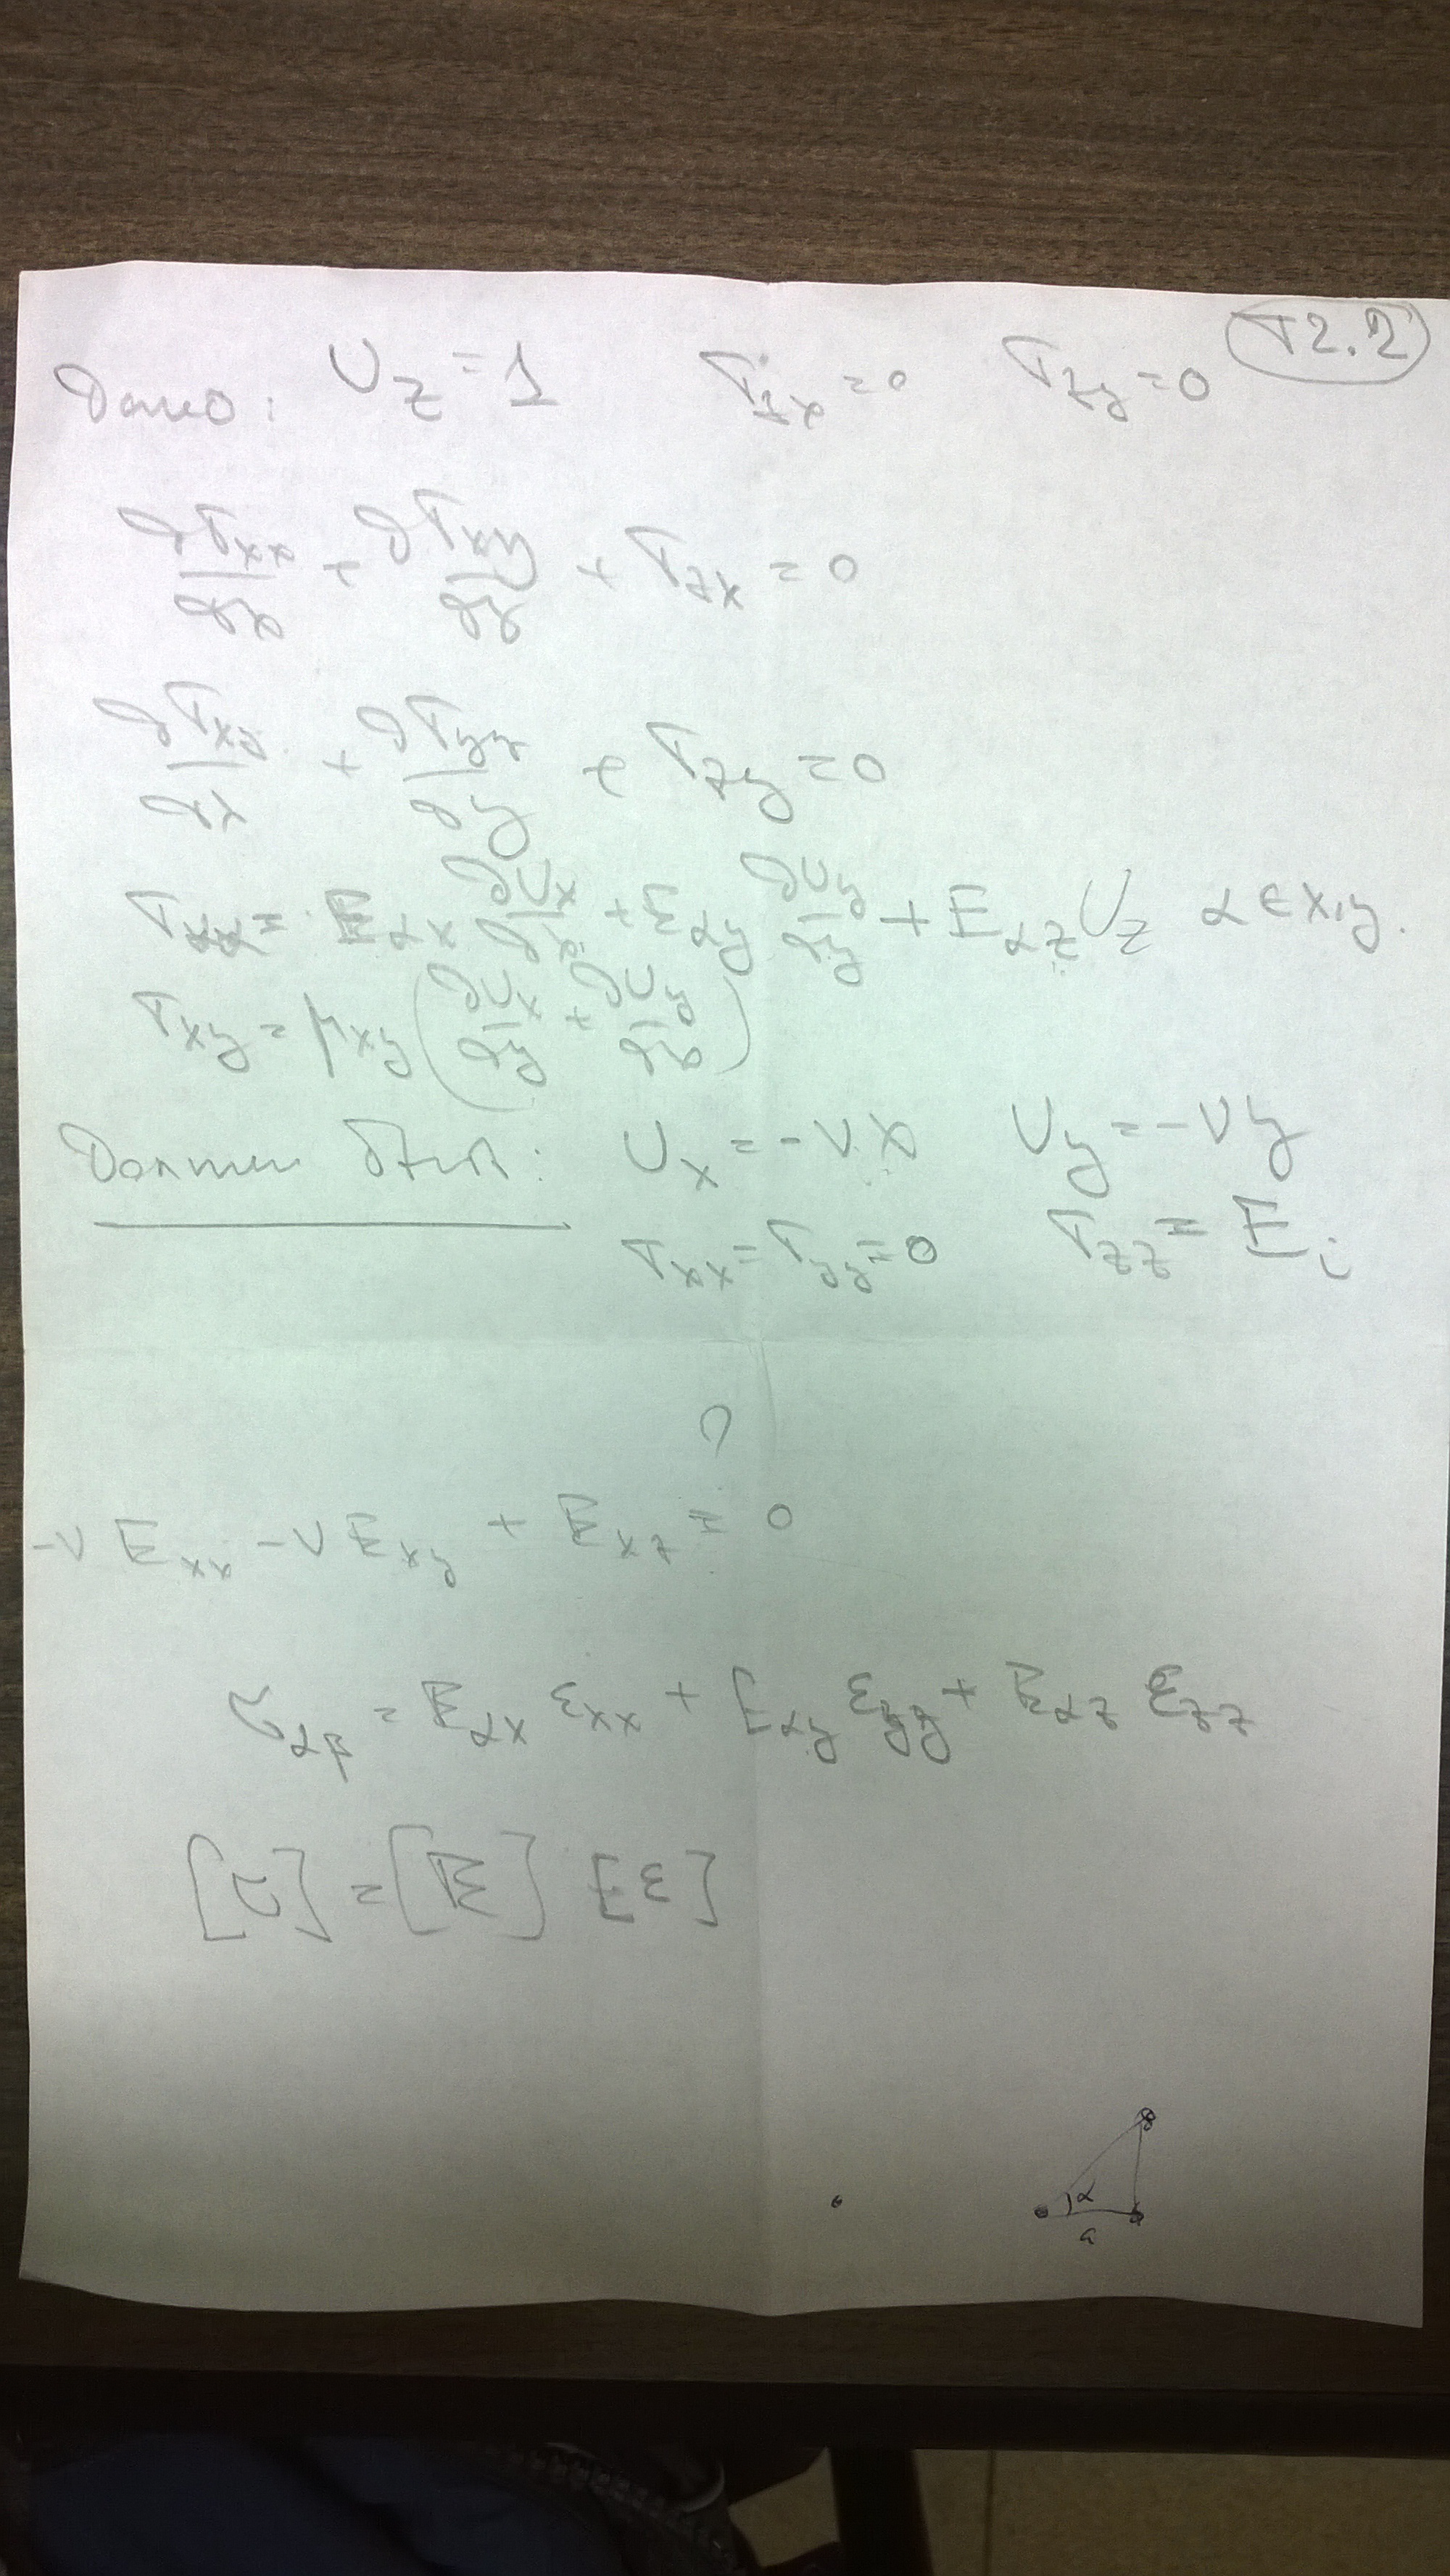 T2.2
Дано: U_z = 1 T_zx = 0 T_zy = 0
∂T_xx/∂x + ∂T_xy/∂y + T_zx = 0
∂T_xy/∂x + ∂T_yy/∂y + T_zy = 0
T_αα = E_αx ∂U_x/∂x + E_αy ∂U_y/∂y + E_αz U_z α ∈ x,y.
T_xy = μ_xy (∂U_x/∂y + ∂U_y/∂x)
Должны быть: U_x = -νx U_y = -νy
T_xx = T_yy = 0 T_zz = E_i
?
-ν E_xx - ν E_xy + E_xz = 0
τ_αβ = E_αx ε_xx + E_αy ε_yy + E_αz ε_zz
[τ] = [E] [ε]
α
a